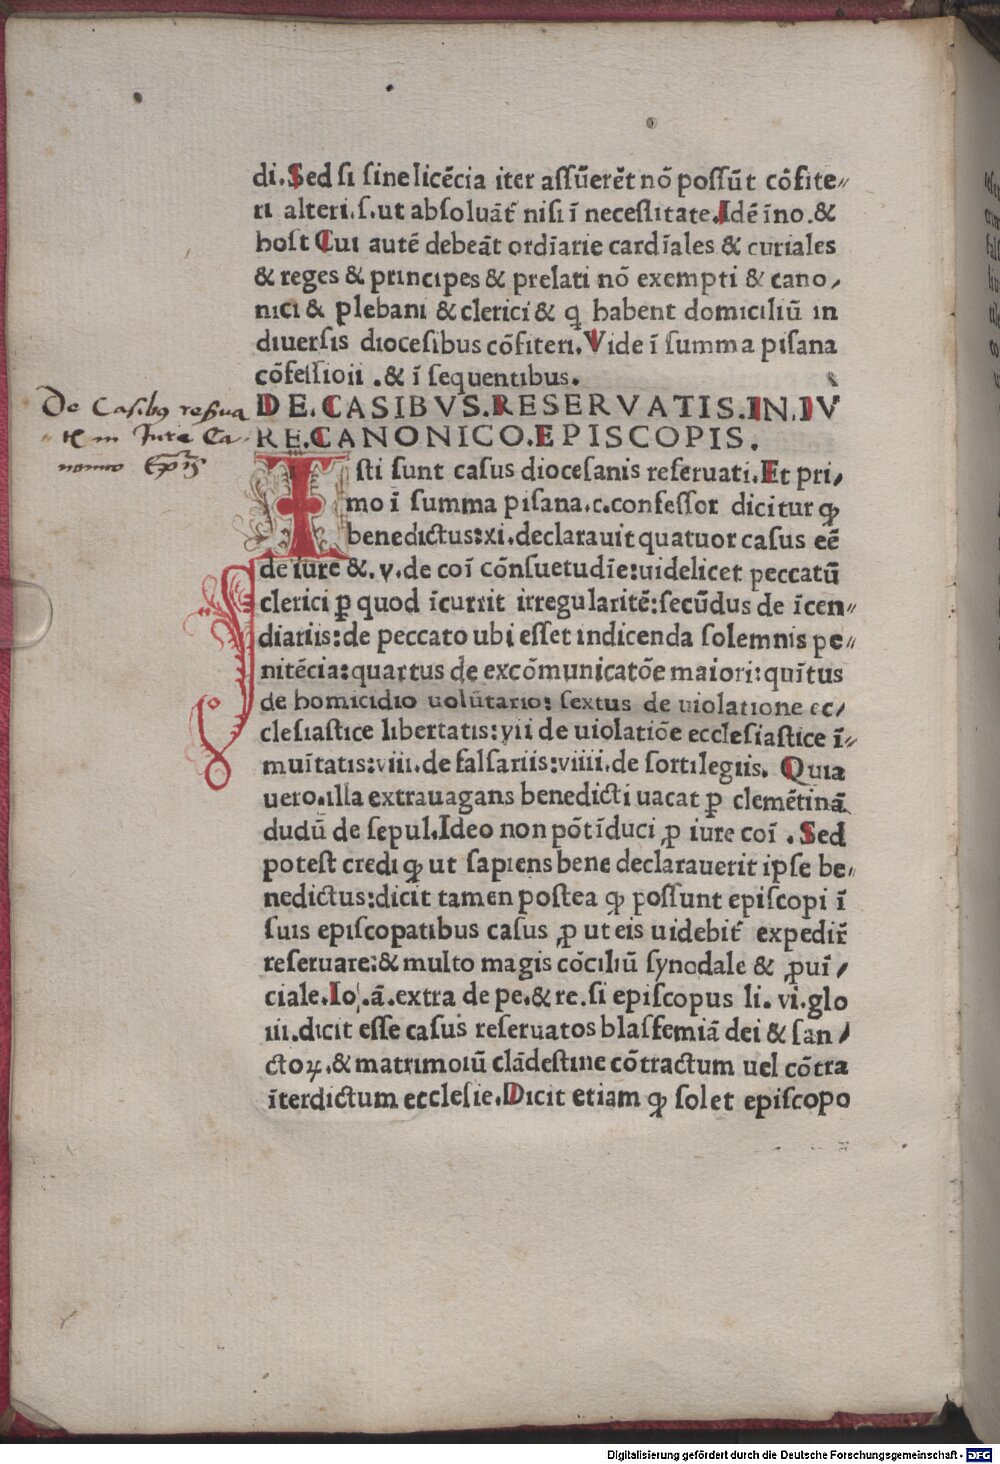 di.Sed ſi ſine licẽcia iter aſſũerẽt nõ poſſũt cõfite⸗
ri alteri.ſ.ut abſoluãt᷑ niſi ĩ neceſſitate.Idẽ ĩno.&
hoſt Cui autẽ debeãt ordĩarie cardĩales & curiales
& reges & principes & prelati nõ exempti & cano⸗
nici & plebani & clerici & q̃ habent domiciliũ in
diuerſis dioceſibus cõfiteri.Vide ĩ ſumma piſana
cõfeſſioii .& ĩ ſequentibus.
DE.CASIBVS.RESERVATIS.IN.IV
RE.CANONICO.EPISCOPIS.
De Casibus reſerua
tis in Jure Ca⸗
nonico Ep̃is
Iſti ſunt caſus dioceſanis reſeruati.Et pri⸗
mo ĩ ſumma piſana.c.confeſſor dicitur ꝙ
benedictus:xi.declarauit quatuor caſus eẽ
de iure &.v.de coĩ cõnſuetudĩe:uidelicet peccatũ
clerici ꝑ quod ĩcurrit irregularitẽ:ſecũdus de ĩcen⸗
diariis:de peccato ubi eſſet indicenda ſolemnis pe⸗
nitẽcia:quartus de excõmunicatõe maiori:quĩtus
de homicidio uolũtario: ſextus de uiolatione ec⸗
cleſiaſtice libertatis:yii de uiolatiõe eccleſiaſtice ĩ⸗
muĩtatis:viii.de falſariis:viiii.de ſortilegiis. Quia
uero.illa extrauagans benedicti uacat ꝑ clemẽtinã
dudũ de ſepul.Ideo non põt ĩduci ꝓ iure coĩ .Sed
poteſt credi ꝙ ut ſapiens bene declarauerit ipſe be⸗
nedictus:dicit tamen poſtea ꝙ poſſunt epiſcopi ĩ
ſuis epiſcopatibus caſus ꝓ ut eis uidebit᷑ expedir̃
reſeruare:& multo magis cõciliũ ſynodale & ꝓuĩ⸗
ciale.Io.ã.extra de pe.& re.ſi epiſcopus li.vi.glo
iii.dicit eſſe caſus reſeruatos blasfemiã dei & ſan⸗
ctoꝝ.& matrimoiũ clãdeſtine cõtractum uel cõtra
ĩterdictum eccleſie.Dicit etiam ꝙ ſolet epiſcopo
Digitalisierung gefördert durch die Deutsche Forschungsgemeinschaft - DFG